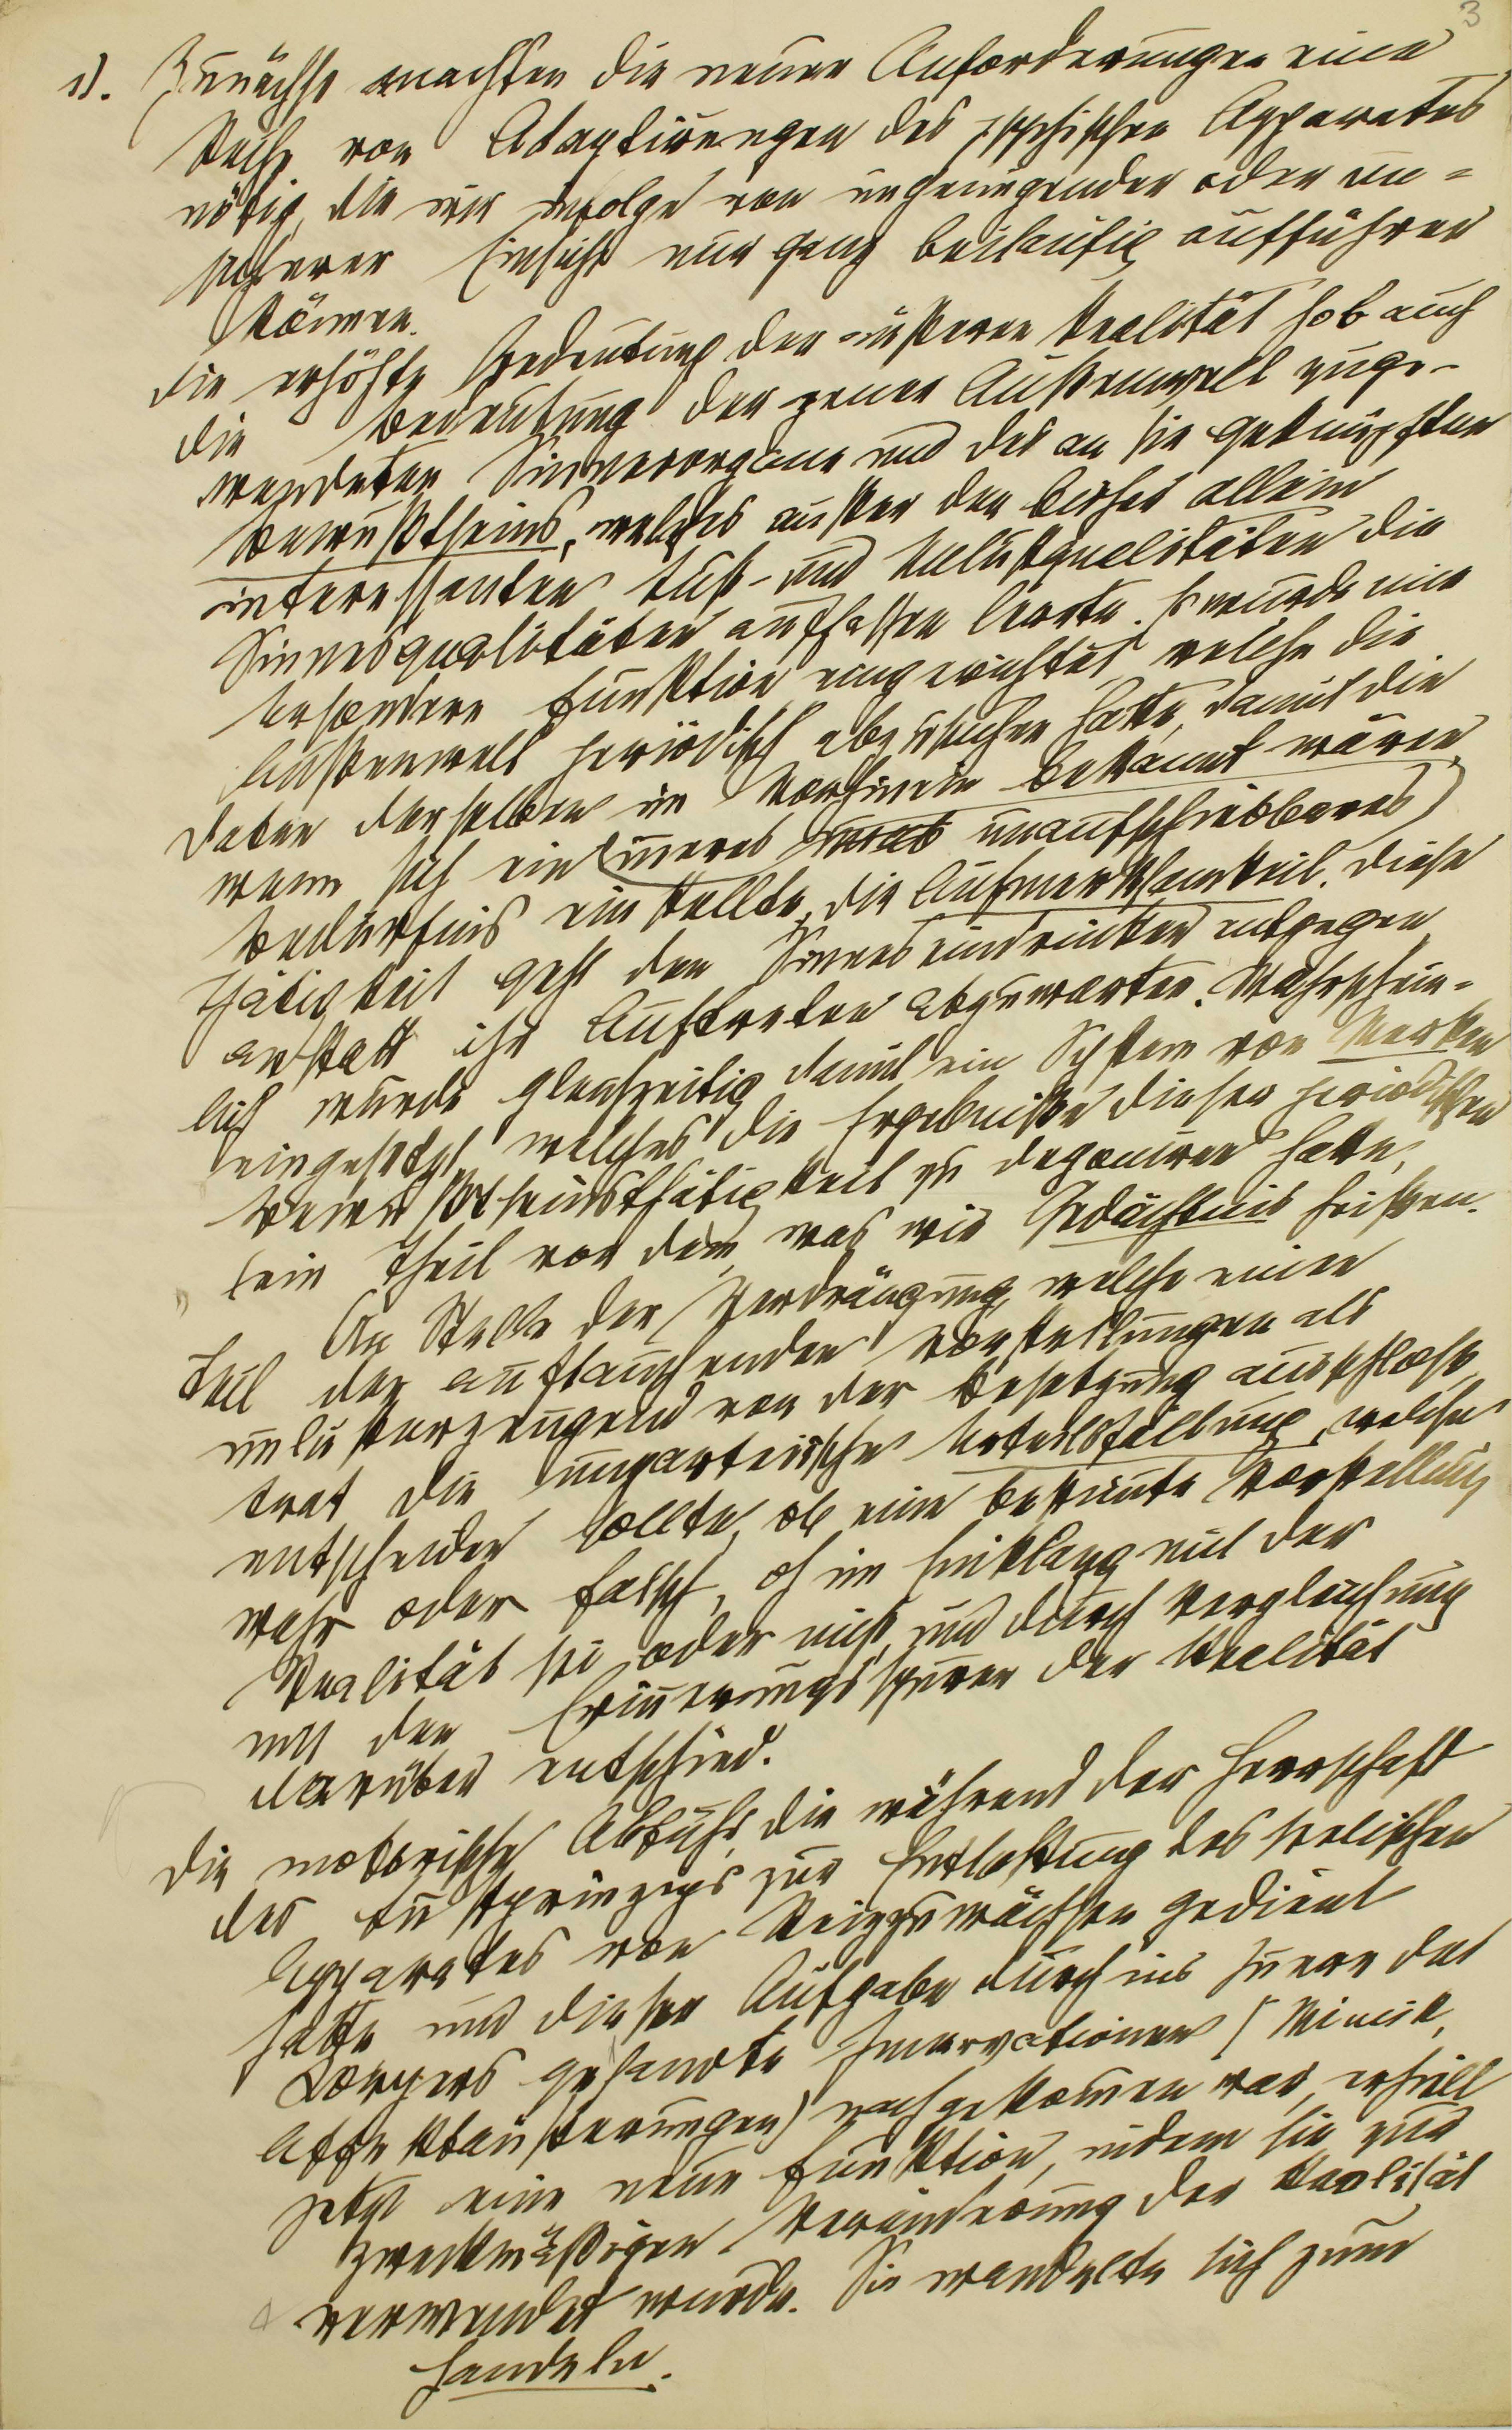 3
1). Zunächst machten die neuen Anforderungen eine
Reihe von Adaptirungen des psychischen Apparates
nötig, die wir infolge von ungenügender oder un=
sicherer Einsicht nur ganz beiläufig aufführen
können.
Die erhöhte Bedeutung der äußeren Realität hob auch
die Bedeutung der jener Außenwelt zuge-
wendeten Sinnesorgane und des an sie geknüpften
Bewußtseins, welches außer den bisher allein
interessanten Lust- und Unlustqualitäten die
Sinnesqualitäten auffassen lernte. Es wurde eine
besondere Funktion eingerichtet, welche die
Außenwelt periodisch abzusuchen hatte, damit die
Daten derselben im Vorhinein bekannt wären,
wenn sich ein inneres unaufschiebbares
Bedürfnis einstellte, die Aufmerksamkeit. Diese
Thätigkeit geht den Sinneseindrücken entgegen
anstatt ihr Auftreten abzuwarten. Wahrschein=
lich wurde gleichzeitig damit ein System von Merken
eingesetzt, welches die Ergebnisse dieser periodischen
Bewußtseinsthätigkeit zu deponiren hatte,
ein Theil von dem, was wir Gedächtnis heißen.
An Stelle der Verdrängung, welche einen
Teil der auftauchenden Vorstellungen als
unlusterzeugend von der Besetzung ausschloß,
trat die unparteiische Urteilsfällung, welche
entscheiden sollte, ob eine bestimmte Vorstellung
wahr oder falsch, dh im Einklang mit der
Realität sei oder nicht, und durch Vergleichung
mit den Erinnerungsspuren der Realität
darüber entschied.
Die motorische Abfuhr, die während der Herrschaft
des Lustprinzips zur Entlastung des seelischen
Apparates von Reizzuwächsen gedient
hatte und dieser Aufgabe durch ins Innere des
Körpers gesandte Innervationen (Mimik,
Affektäußerungen) nachgekommen war, erhielt
jetzt eine neue Funktion, indem sie zur
zweckmäßigen Veränderung der Realität
verwendet wurde. Sie wandelte sich zum
Handeln.